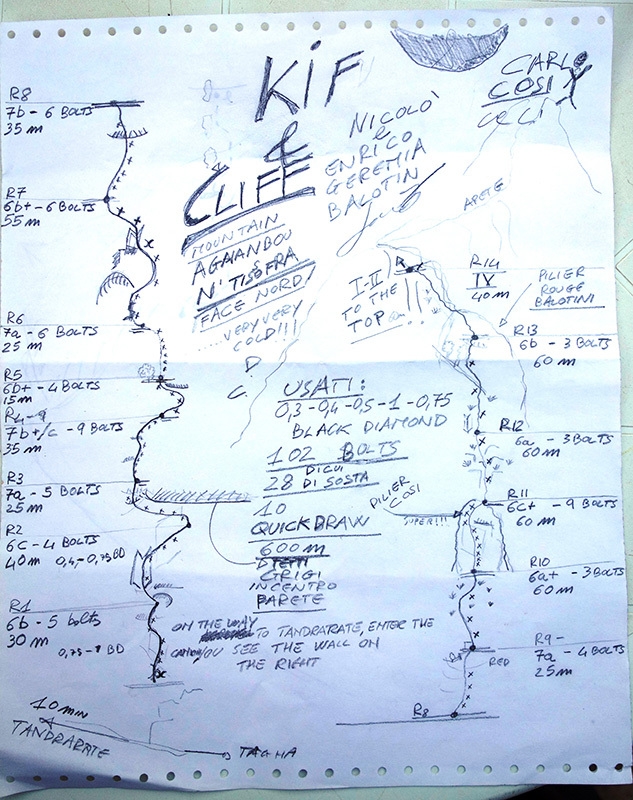 KiF
&
CLIFF
MOUNTAIN
AGAIANBOU
N'TISOFRA
FACE NORD!
.....VERY VERY
COLD!!!
NICOLO'
e
ENRICO
GEREMIA
BALOTIN
CARLO
COSI
CE CI
R8
7b - 6 BOLTS
35 m
R7
6b+ - 6 BOLTS
55 m
R6
7a - 6 BOLTS
25 m
R5
6b+ - 4 BOLTS
15 m
R4-9
7b+/c - 9 BOLTS
35 m
R3
7a - 5 BOLTS
25 m
R2
6c - 4 BOLTS
40 m 0,4-0,75 BD
R1
6b - 5 bolts
30 m
0,75-1 BD
10 min
TANDRARATE
TAGHA
USATI:
0,3-0,4-0,5-1-0,75
BLACK DIAMOND
102 BOLTS
DI CUI
28 DI SOSTA
10
QUICKDRAW
600 m
GRIGI
INCENTRO
PARETE
ON THE WAY
TO TANDRARATE, ENTER THE
YOU SEE THE WALL ON
THE RIGHT
ARETE
I-II
TO THE
TOP !!
R14
IV
40 m
PILIER
ROUGE
BALOTINI
R13
6b - 3 BOLTS
60 m
R12
6a - 3 BOLTS
60 m
PILIER
COSI
SUPER!!!
R11
6c+ - 9 BOLTS
60 m
R10
6a+ - 3 BOLTS
60 m
R9-
7a - 4 BOLTS
25 m
RED
R8